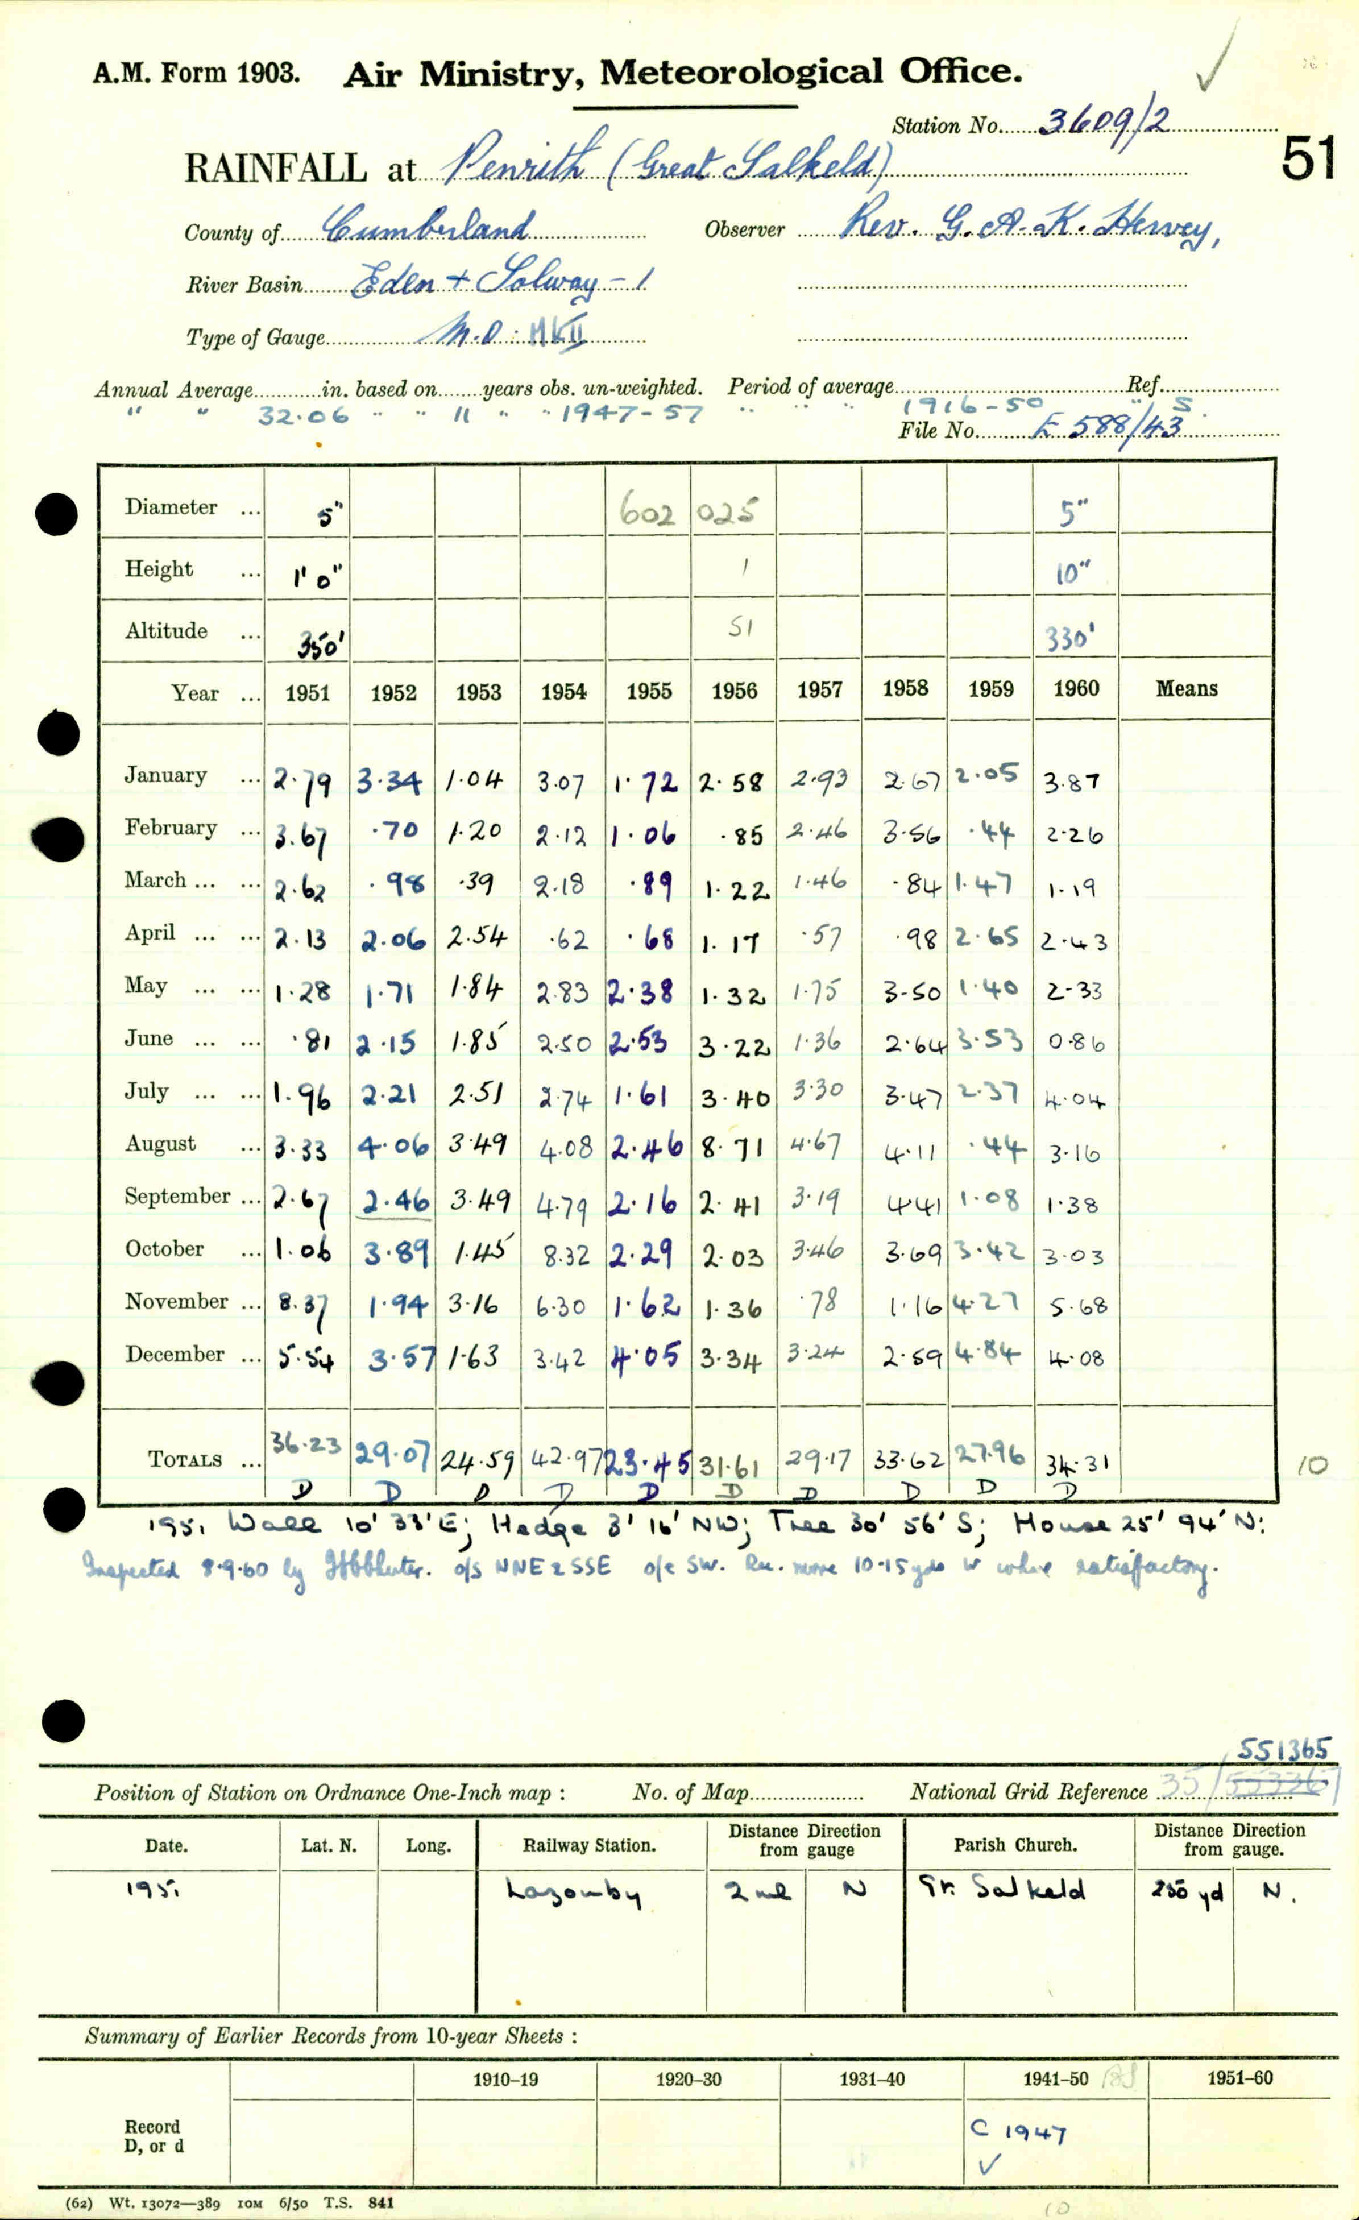 A.M. Form 1903. Air Ministry, Meteorological Office.
Station No. 3609/2
51
RAINFALL at Penrith (Great Salkeld)
County of Cumberland Observer Rev. G. A. K. Hervey,
River Basin Eden + Solway - 1
Type of Gauge M.O. Mk II
Annual Average in. based on years obs. un-weighted. Period of average Ref.
" " 32.06 " " 11 " " 1947-57 " " " 1916-50 " S.
File No. E 588/43
Diameter ... 5" 602 025 5"
Height ... 1' 0" 1 10"
Altitude ... 350' 51 330'
Year ... 1951 1952 1953 1954 1955 1956 1957 1958 1959 1960 Means
January ... 2.79 3.34 1.04 3.07 1.72 2.58 2.93 2.67 2.05 3.87
February ... 3.67 .70 1.20 2.12 1.06 .85 2.46 3.56 .44 2.26
March ... ... 2.62 .98 .39 2.18 .89 1.22 1.46 .84 1.47 1.19
April ... ... 2.13 2.06 2.54 .62 .68 1.17 .57 .98 2.65 2.43
May ... ... 1.28 1.71 1.84 2.83 2.38 1.32 1.75 3.50 1.40 2.33
June ... ... .81 2.15 1.85 2.50 2.53 3.22 1.36 2.64 3.53 0.86
July ... ... 1.96 2.21 2.51 2.74 1.61 3.40 3.30 3.47 2.37 4.04
August ... 3.33 4.06 3.49 4.08 2.46 8.71 4.67 4.11 .44 3.16
September ... 2.67 2.46 3.49 4.79 2.16 2.41 3.19 4.41 1.08 1.38
October ... 1.06 3.89 1.45 8.32 2.29 2.03 3.46 3.69 3.42 3.03
November ... 8.37 1.94 3.16 6.30 1.62 1.36 .78 1.16 4.27 5.68
December ... 5.54 3.57 1.63 3.42 4.05 3.34 3.24 2.59 4.84 4.08
TOTALS ... 36.23 29.07 24.59 42.97 23.45 31.61 29.17 33.62 27.96 34.31 10
D D D D D D D D D D
1951 Wall 10' 33' E; Hedge 3' 16' NW; Tree 30' 56' S; House 25' 94' N:
Inspected 8.9.60 by o/s NNE & SSE o/e SW. move 10-15 yds W where satisfactory.
551365
Position of Station on Ordnance One-Inch map : No. of Map National Grid Reference 35/553367
Date. Lat. N. Long. Railway Station. Distance Direction from gauge Parish Church. Distance Direction from gauge.
1951 Lazonby 2 ml N Gt. Salkeld 250 yd N.
Summary of Earlier Records from 10-year Sheets :
1910–19 1920–30 1931–40 1941–50 1951–60
Record
D, or d
C 1947
(62) Wt. 13072—389 10M 6/50 T.S. 841
10